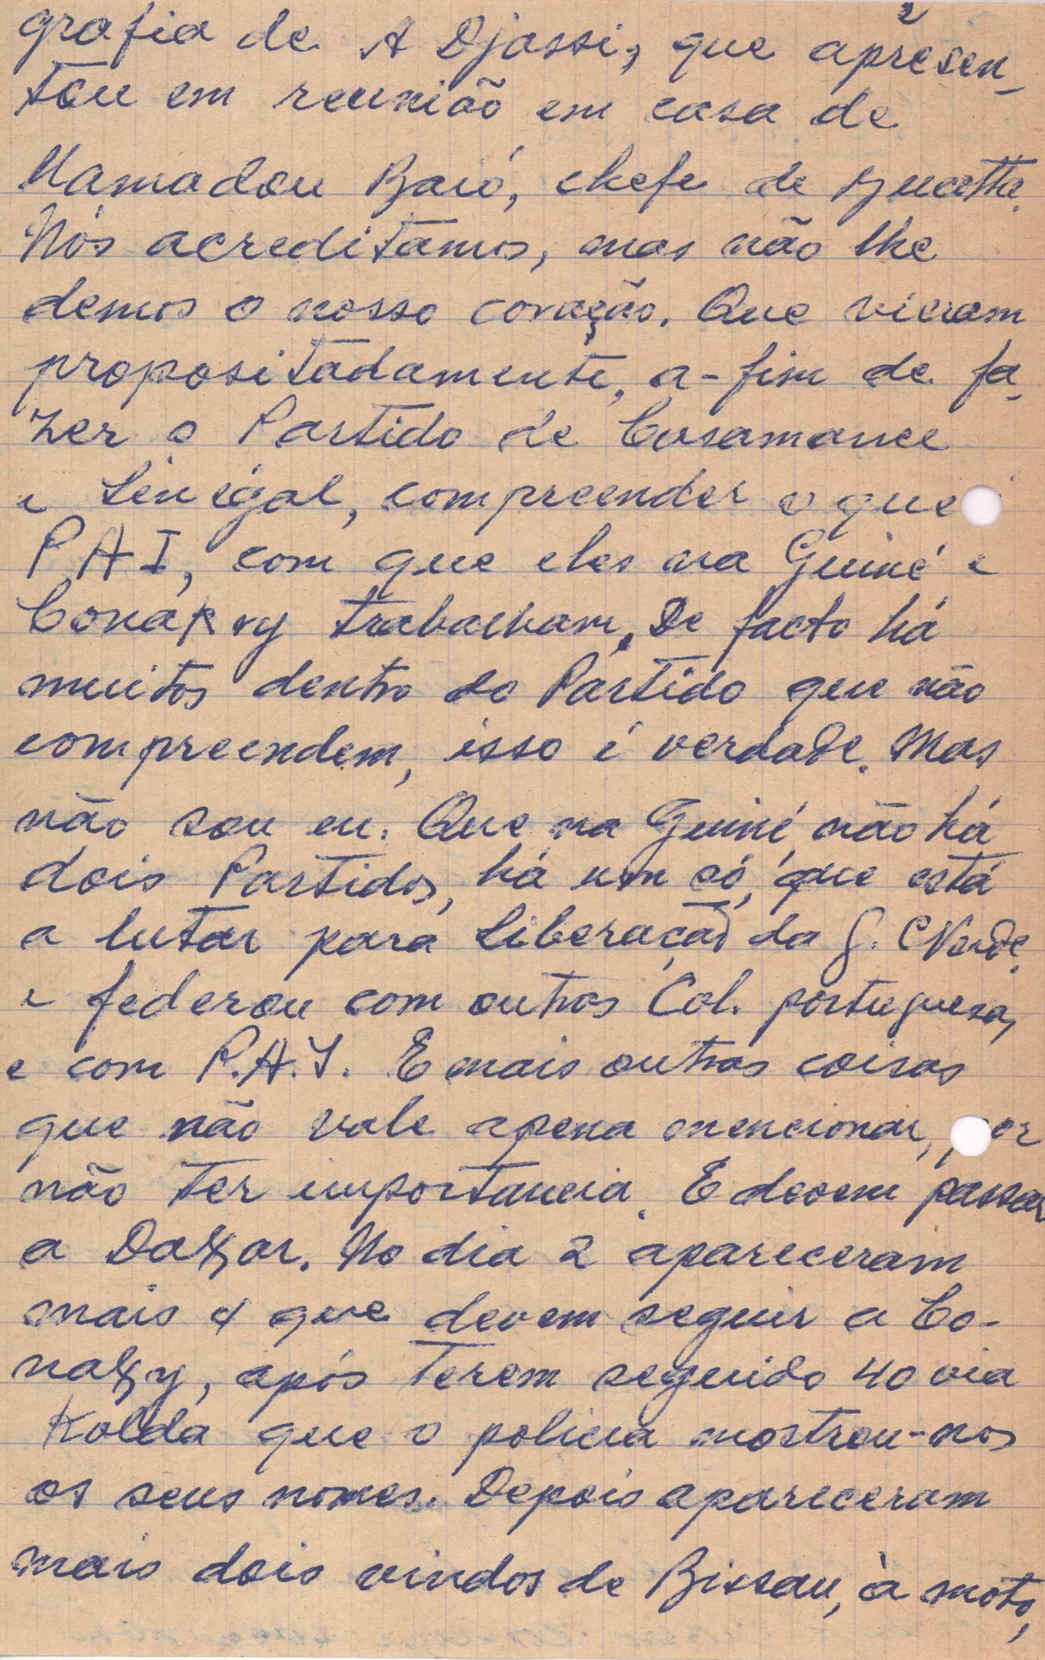 2
grafia de A Djassi, que apresen_
tou em reunião em casa de
Mamadou Baió, chefe de
Nós acreditamos, mas não lhe
demos o nosso coração. Que vieram
propositadamente, a-fim de fa_
zer o Partido de Casamance
e Sénégal, compreender o que
PAI, com que eles na Guiné e
Conakry trabalham. De facto há
muitos dentro do Partido que não
compreendem, isso é verdade. Mas
não sou eu. Que na Guiné não há
dois Partidos, há um só, que está
a lutar para liberação da G. CVerde
e federou com outras Col. portuguesas,
e com P.A.I. E mais outras coisas
que não vale apena mencionar, por
não ter importancia. E devem passar
a Dakar. No dia 2 apareceram
mais 4 que devem seguir a Co-
nakry, após terem seguido 40 via
Kolda que o policia mostrou-nos
os seus nomes. Depois apareceram
mais dois vindos de Bissau, à moto,